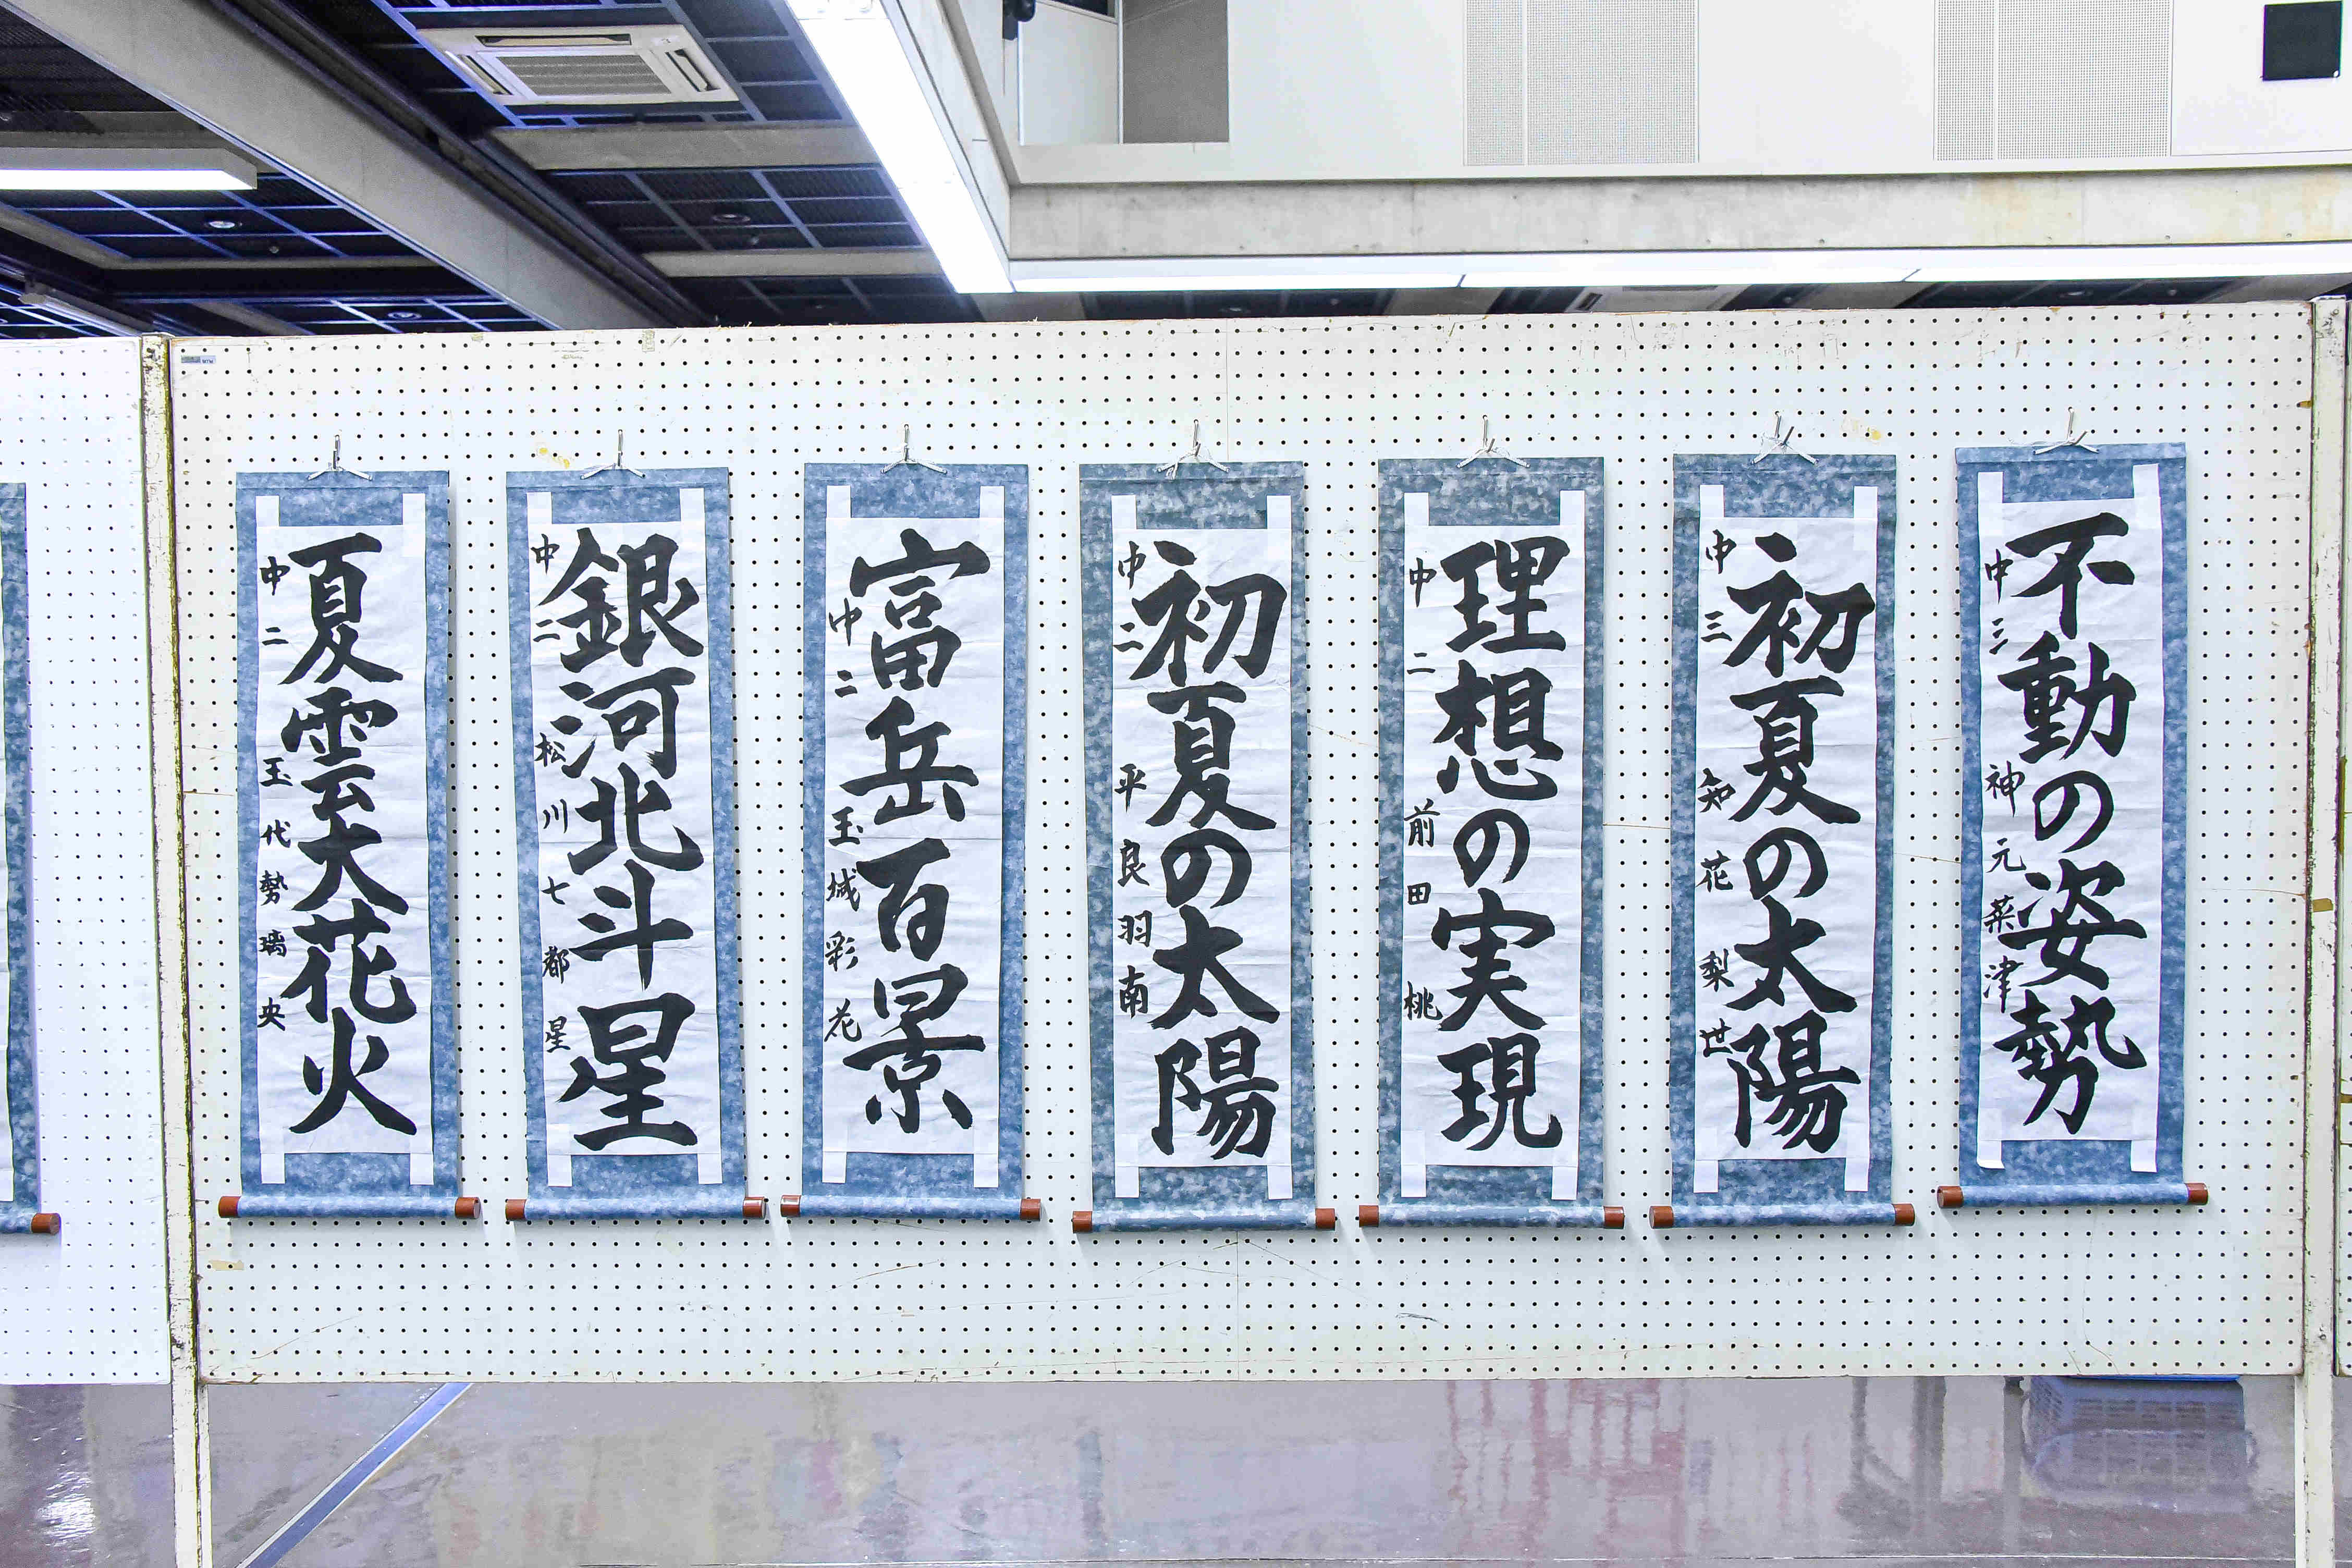 不動の姿勢
中三 神元菜津
初夏の太陽
中三 知花梨世
理想の実現
中二 前田桃
初夏の太陽
中二 平良羽南
富岳百景
中二 玉城彩花
銀河北斗星
中二 松川七都星
夏雲大花火
中二 玉代勢璃央